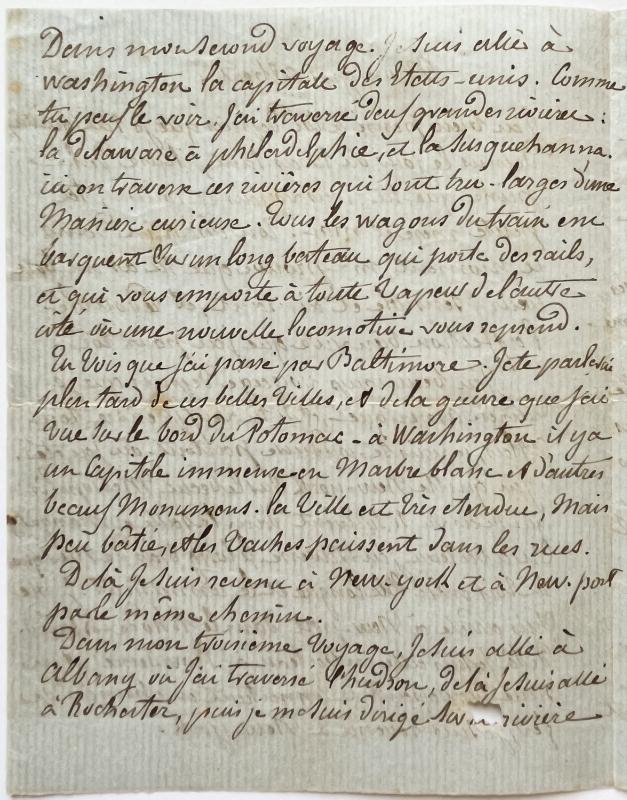 Dans mon second voyage. Je suis allé à
Washington la capitale des Etats-unis. Comme
tu peus le voir. J'ai traversé deus grandes rivières :
la delaware à philadelphie, et la Susquehanna.
ici on traverse ces rivières qui sont très-larges d'une
Manière curieuse. Tous les wagons du train em
barquent sur un long bateau qui porte des rails,
et qui vous emporte à toute vapeur de l'autre
côté où une nouvelle locomotive vous reprend.
Tu vois que j'ai passé par Baltimore. Je te parlerai
plus tard de ces belles Villes, et de la guerre que j'ai
vue sur le bord du Potomac - à Washington il y a
un Capitole immense en Marbre blanc et d'autres
beaus Monumens. la Ville est très etendue, Mais
peu bâtie, et les Vaches paissent dans les rues.
De là Je suis revenu à New-york et à New-port
par le même chemin.
Dans mon troisième Voyage, Je suis allé à
Albany où J'ai traversé l'hudson, de là Je suis allé
à Rochester, puis je me suis dirigé sur rivière